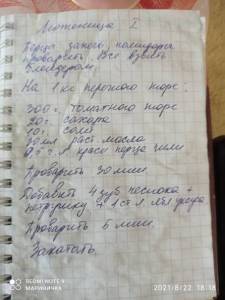 Лютеница I
Перцы запечь, помидоры
проварить. Все взбить
блендером.
На 1 кг перечного пюре:
300 г. томатного пюре
20 г. сахара
10 г. соли
30 мл раст. масла
0,5 ч л красн перца чили
Проварить 30 мин
Добавить 4 зуб чеснока +
петрушку + 1 ст л ябл уксуса
Проварить 5 мин.
Закатать.
REDMI NOTE 9
МАРИНИЧКА
2021/8/22 18:18